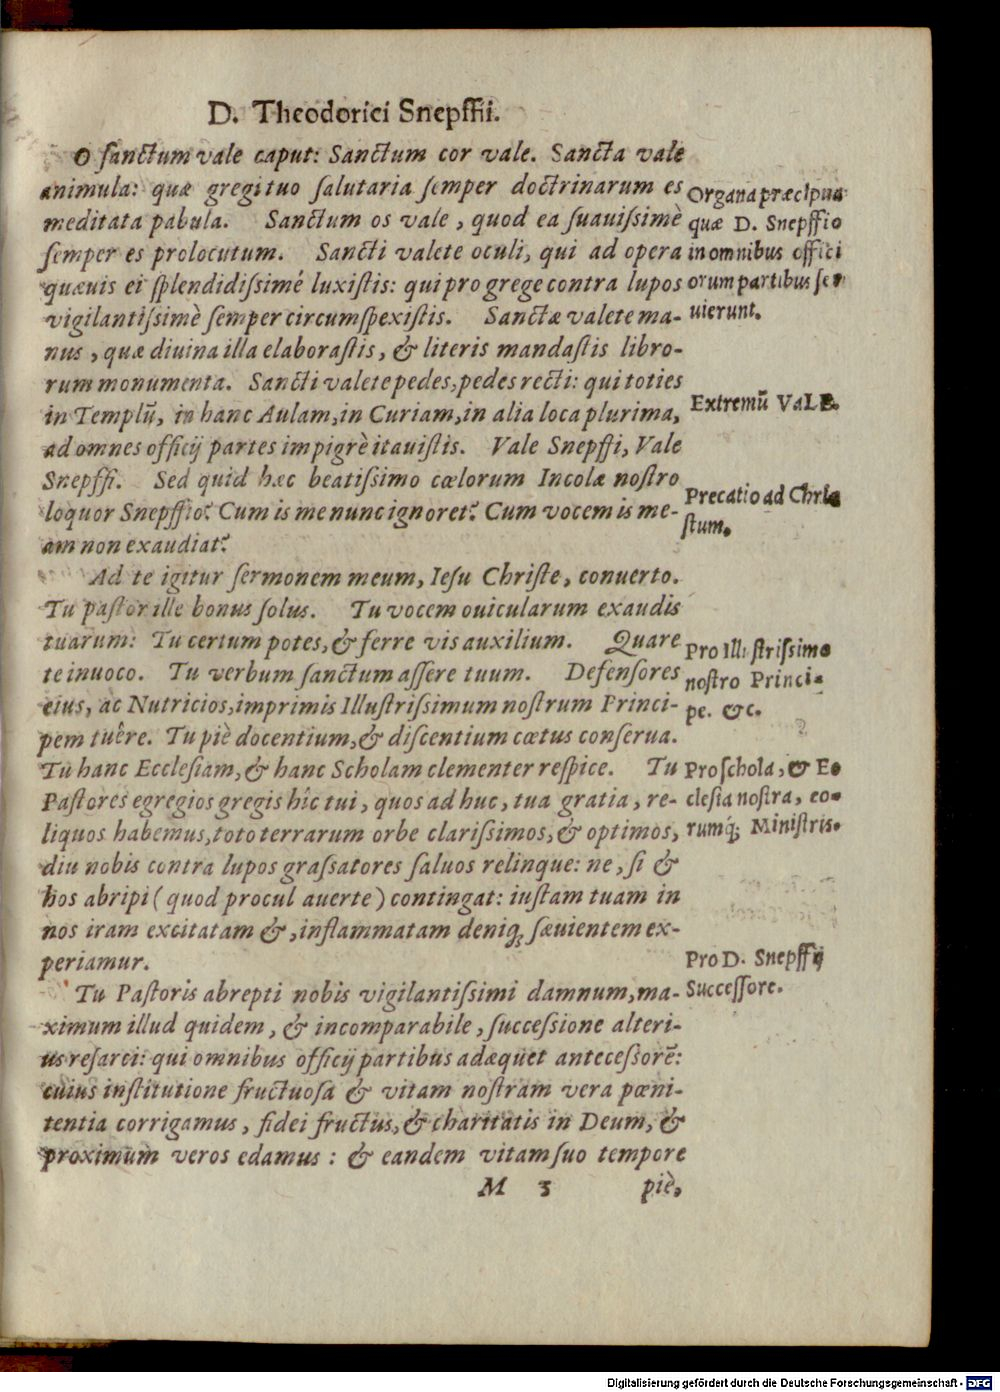 D. Theodorici Snepffii.
O ſanctum vale caput: Sanctum cor vale. Sancta vale
animula: quæ gregi tuo ſalutaria ſemper doctrinarum es
meditata pabula. Sanctum os vale, quod ea ſuauiſsimè
ſemper es prolocutum. Sancti valete oculi, qui ad opera
quæuis ei ſplendidiſsimé luxiſtis: qui pro grege contra lupos
vigilantiſsimè ſemper circumſpexiſtis. Sanctæ valete ma-
nus, quæ diuina illa elaboraſtis, & literis mandaſtis libro-
rum monumenta. Sancti valete pedes, pedes recti: qui toties
in Templũ, in hanc Aulam, in Curiam, in alia loca plurima,
ad omnes officij partes impigrè itauiſtis. Vale Snepffi, Vale
Snepffi. Sed quid hæc beatiſsimo cœlorum Incolæ noſtro
loquor Snepffio? Cum is me nunc ignoret? Cum vocem is me-
am non exaudiat?
Ad te igitur ſermonem meum, Ieſu Chriſte, conuerto.
Tu paſtor ille bonus ſolus. Tu vocem ouicularum exaudis
tuarum: Tu certum potes, & ferre vis auxilium. Quare
te inuoco. Tu verbum ſanctum aſſere tuum. Defenſores
eius, ac Nutricios, imprimis Illuſtriſsimum noſtrum Princi-
pem tuêre. Tu piè docentium, & diſcentium cœtus conſerua.
Tu hanc Eccleſiam, & hanc Scholam clementer reſpice. Tu
Paſtores egregios gregis hîc tui, quos ad huc, tua gratia, re-
liquos habemus, toto terrarum orbe clariſsimos, & optimos,
diu nobis contra lupos graſsatores ſaluos relinque: ne, ſi &
hos abripi (quod procul auerte) contingat: iuſtam tuam in
nos iram excitatam &, inflammatam deniq; ſæuientem ex-
periamur.
Tu Paſtoris abrepti nobis vigilantiſsimi damnum, ma-
ximum illud quidem, & incomparabile, ſucceſsione alteri-
us reſarci: qui omnibus officij partibus adæquet anteceſsorẽ:
cuius inſtitutione fructuoſa & vitam noſtram vera pœni-
tentia corrigamus, fidei fructus, & charitatis in Deum, &
proximum veros edamus: & eandem vitam ſuo tempore
M 3 piè,
Organa præcipua
quæ D. Snepffio
in omnibus offici
orum partibus ſer
uierunt.
Extremũ VaLE.
Precatio ad Chri
ſtum.
Pro Illuſtriſsimo
noſtro Princi-
pe. &c.
Pro ſchola, & Ec
cleſia noſtra, eo-
rumq; Miniſtris.
Pro D. Snepffij
Succeſſore.
Digitalisierung gefördert durch die Deutsche Forschungsgemeinschaft - DFG